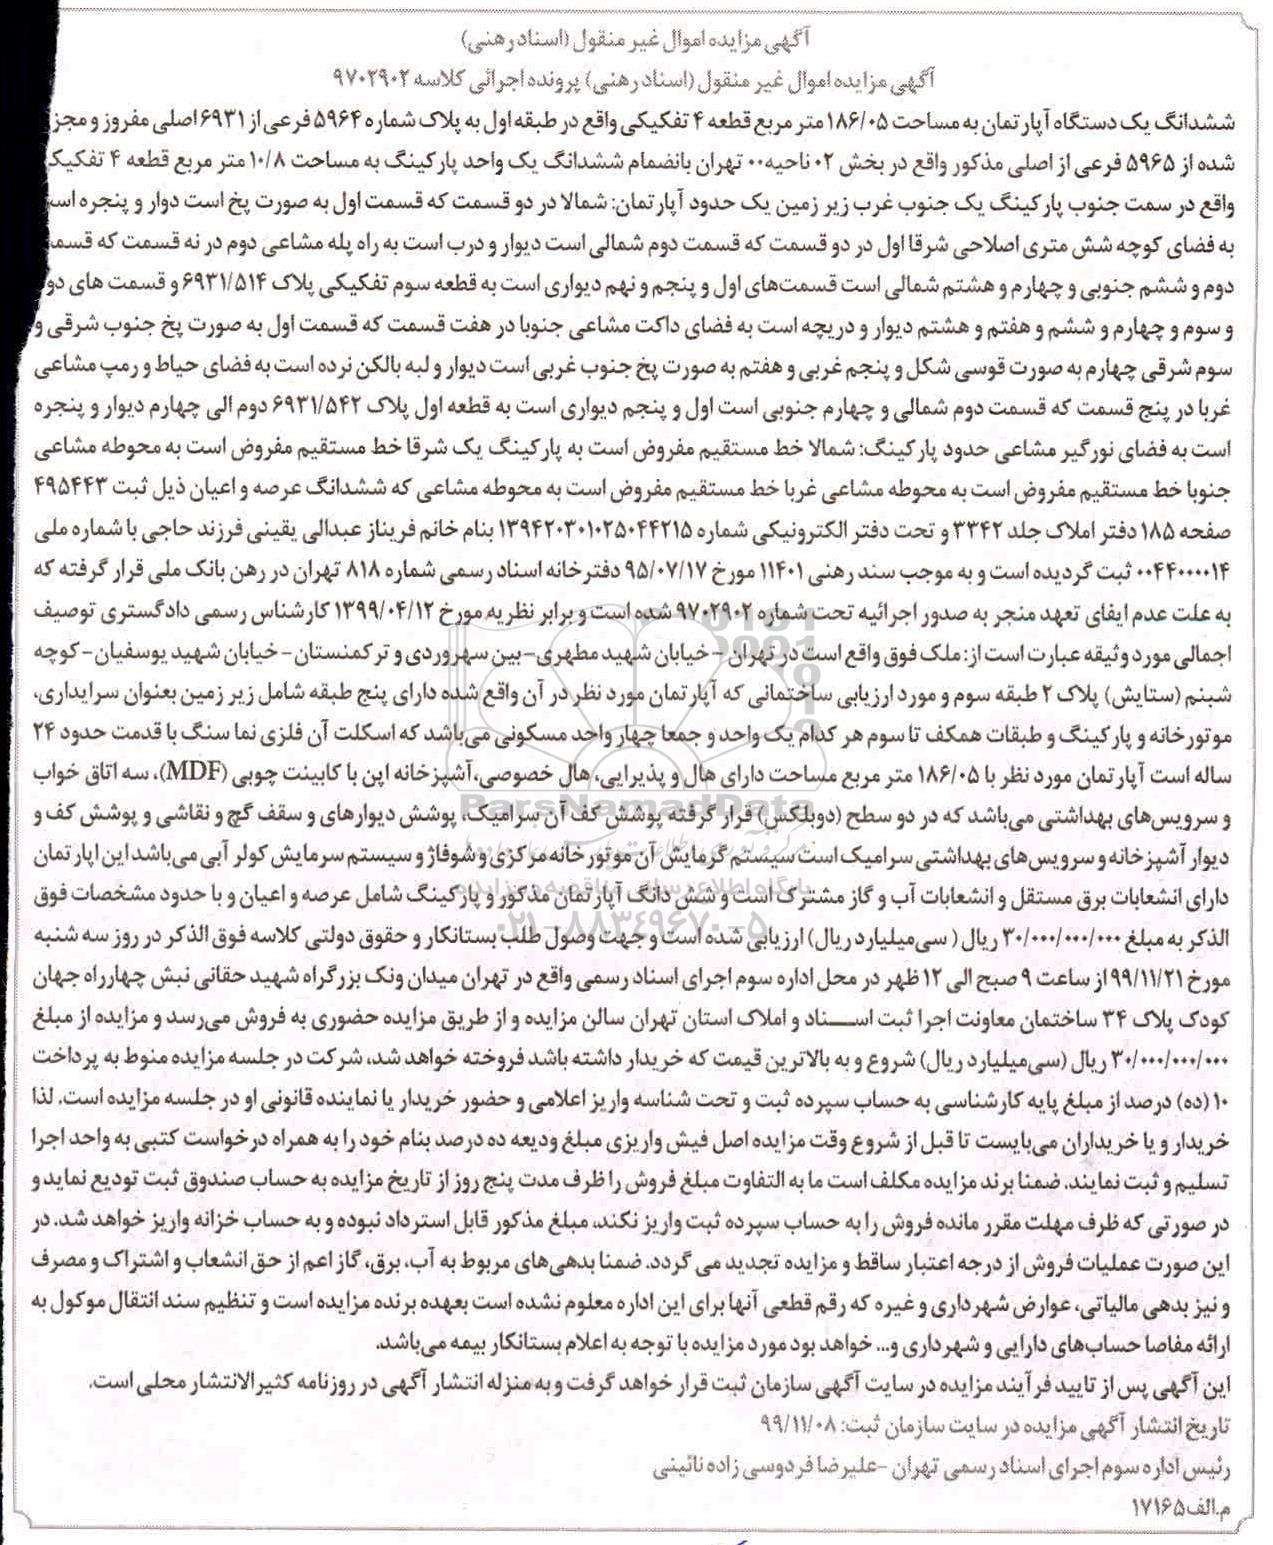 آگهی مزایده اموال غیر منقول (اسناد رهنی)
آگهی مزایده اموال غیر منقول (اسناد رهنی) پرونده اجرائی کلاسه ۹۷۰۲۹۰۲
ششدانگ یک دستگاه آپارتمان به مساحت ۱۸۶/۰۵ متر مربع قطعه ۴ تفکیکی واقع در طبقه اول به پلاک شماره ۵۹۶۴ فرعی از ۶۹۳۱ اصلی مفروز و مجز
شده از ۵۹۶۵ فرعی از اصلی مذکور واقع در بخش ۰۲ ناحیه ۰۰ تهران بانضمام ششدانگ یک واحد پارکینگ به مساحت ۱۰/۸ متر مربع قطعه ۴ تفکیک
واقع در سمت جنوب پارکینگ یک جنوب غرب زیر زمین یک حدود آپارتمان: شمالا در دو قسمت که قسمت اول به صورت پخ است دوار و پنجره است
به فضای کوچه شش متری اصلاحی شرقا اول در دو قسمت که قسمت دوم شمالی است دیوار و درب است به راه پله مشاعی دوم در نه قسمت که قسمت
دوم و ششم جنوبی و چهارم و هشتم شمالی است قسمت‌های اول و پنجم و نهم دیواری است به قطعه سوم تفکیکی پلاک ۶۹۳۱/۵۱۴ و قسمت های دو
و سوم و چهارم و ششم و هفتم و هشتم دیوار و دریچه است به فضای داکت مشاعی جنوبا در هفت قسمت که قسمت اول به صورت پخ جنوب شرقی و
سوم شرقی چهارم به صورت قوسی شکل و پنجم غربی و هفتم به صورت پخ جنوب غربی است دیوار و لبه بالکن نرده است به فضای حیاط و رمپ مشاعی
غربا در پنج قسمت که قسمت دوم شمالی و چهارم جنوبی است اول و پنجم دیواری است به قطعه اول پلاک ۶۹۳۱/۵۴۲ دوم الی چهارم دیوار و پنجره
است به فضای نورگیر مشاعی حدود پارکینگ: شمالا خط مستقیم مفروض است به پارکینگ یک شرقا خط مستقیم مفروض است به محوطه مشاعی
جنوبا خط مستقیم مفروض است به محوطه مشاعی غربا خط مستقیم مفروض است به محوطه مشاعی که ششدانگ عرصه و اعیان ذیل ثبت ۴۹۵۴۴۳
صفحه ۱۸۵ دفتر املاک جلد ۳۳۴۲ و تحت دفتر الکترونیکی شماره ۱۳۹۴۲۰۳۰۱۰۲۵۰۴۴۲۱۵ بنام خانم فریناز عبدالی یقینی فرزند حاجی با شماره ملی
۰۰۴۴۰۰۰۰۱۴ ثبت گردیده است و به موجب سند رهنی ۱۱۴۰۱ مورخ ۹۵/۰۷/۱۷ دفترخانه اسناد رسمی شماره ۸۱۸ تهران در رهن بانک ملی قرار گرفته که
به علت عدم ایفای تعهد منجر به صدور اجرائیه تحت شماره ۹۷۰۲۹۰۲ شده است و برابر نظریه مورخ ۱۳۹۹/۰۴/۱۲ کارشناس رسمی دادگستری توصیف
اجمالی مورد وثیقه عبارت است از: ملک فوق واقع است در تهران - خیابان شهید مطهری- بین سهروردی و ترکمنستان- خیابان شهید یوسفیان- کوچه
شبنم (ستایش) پلاک ۲ طبقه سوم و مورد ارزیابی ساختمانی که آپارتمان مورد نظر در آن واقع شده دارای پنج طبقه شامل زیر زمین بعنوان سرایداری،
موتورخانه و پارکینگ و طبقات همکف تا سوم هر کدام یک واحد و جمعا چهار واحد مسکونی می‌باشد که اسکلت آن فلزی نما سنگ با قدمت حدود ۲۴
ساله است آپارتمان مورد نظر با ۱۸۶/۰۵ متر مربع مساحت دارای هال و پذیرایی، هال خصوصی، آشپزخانه اپن با کابینت چوبی (MDF)، سه اتاق خواب
و سرویس‌های بهداشتی می‌باشد که در دو سطح (دوبلکس) قرار گرفته پوشش کف آن سرامیک، پوشش دیوارهای و سقف گچ و نقاشی و پوشش کف و
دیوار آشپزخانه و سرویس‌های بهداشتی سرامیک است سیستم گرمایش آن موتورخانه مرکزی و شوفاژ و سیستم سرمایش کولر آبی می‌باشد این اپارتمان
دارای انشعابات برق مستقل و انشعابات آب و گاز مشترک است و شش دانگ آپارتمان مذکور و پارکینگ شامل عرصه و اعیان و با حدود مشخصات فوق
الذکر به مبلغ ۳۰/۰۰۰/۰۰۰/۰۰۰ ریال ( سی‌میلیارد ریال) ارزیابی شده است و جهت وصول طلب بستانکار و حقوق دولتی کلاسه فوق الذکر در روز سه شنبه
مورخ ۹۹/۱۱/۲۱ از ساعت ۹ صبح الی ۱۲ ظهر در محل اداره سوم اجرای اسناد رسمی واقع در تهران میدان ونک بزرگراه شهید حقانی نبش چهارراه جهان
کودک پلاک ۳۴ ساختمان معاونت اجرا ثبت اسناد و املاک استان تهران سالن مزایده و از طریق مزایده حضوری به فروش می‌رسد و مزایده از مبلغ
۳۰/۰۰۰/۰۰۰/۰۰۰ ریال (سی‌میلیارد ریال) شروع و به بالاترین قیمت که خریدار داشته باشد فروخته خواهد شد، شرکت در جلسه مزایده منوط به پرداخت
۱۰ (ده) درصد از مبلغ پایه کارشناسی به حساب سپرده ثبت و تحت شناسه واریز اعلامی و حضور خریدار یا نماینده قانونی او در جلسه مزایده است. لذا
خریدار و یا خریداران می‌بایست تا قبل از شروع وقت مزایده اصل فیش واریزی مبلغ ودیعه ده درصد بنام خود را به همراه درخواست کتبی به واحد اجرا
تسلیم و ثبت نمایند. ضمنا برند مزایده مکلف است ما به التفاوت مبلغ فروش را ظرف مدت پنج روز از تاریخ مزایده به حساب صندوق ثبت تودیع نماید و
در صورتی که ظرف مهلت مقرر مانده فروش را به حساب سپرده ثبت واریز نکند، مبلغ مذکور قابل استرداد نبوده و به حساب خزانه واریز خواهد شد. در
این صورت عملیات فروش از درجه اعتبار ساقط و مزایده تجدید می گردد. ضمنا بدهی‌های مربوط به آب، برق، گاز اعم از حق انشعاب و اشتراک و مصرف
و نیز بدهی مالیاتی، عوارض شهرداری و غیره که رقم قطعی آنها برای این اداره معلوم نشده است بعهده برنده مزایده است و تنظیم سند انتقال موکول به
ارائه مفاصا حساب‌های دارایی و شهرداری و... خواهد بود مورد مزایده با توجه به اعلام بستانکار بیمه می‌باشد.
این آگهی پس از تایید فرآیند مزایده در سایت آگهی سازمان ثبت قرار خواهد گرفت و به منزله انتشار آگهی در روزنامه کثیرالانتشار محلی است.
تاریخ انتشار آگهی مزایده در سایت سازمان ثبت: ۹۹/۱۱/۰۸
رئیس اداره سوم اجرای اسناد رسمی تهران -علیرضا فردوسی زاده نائینی
م.الف ۱۷۱۶۵
ParsNamadData
پایگاه اطلاع رسانی مناقصه و مزایده
۰۲۱-۸۸۳۴۹۶۷۰-۵